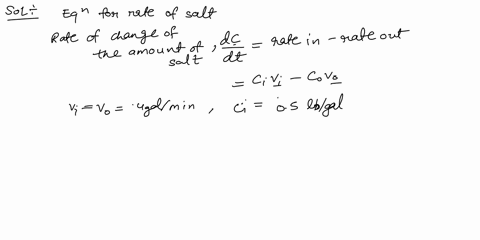 SOL:÷ Eqⁿ for rate of salt
Rate of change of
the amount of salt, dC/dt = rate in - rate out
= Ci vi - Co vo
vi = vo = 4gal/min, Ci = 0.5 lb/gal